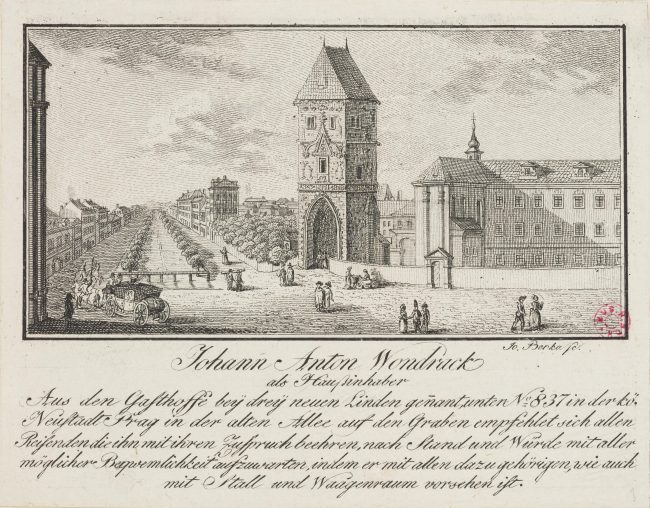 Jo. Berka sc.
Johann Anton Wondruck
als Hausinhaber
Aus den Gasthoffe beÿ dreÿ neuen Linden genant, unter No. 837 in der kö.
Neustadt Prag in der alten Allee auf den Graben empfehlet sich allen
Reisenden die ihn mit ihren Zuspruch beehren, nach Stand und Würde mit aller
möglicher Beqwemlichkeit aufzuwarten, indem er mit allen dazu gehörigen, wie auch
mit Stall und Waagenraum vorsehen ist.